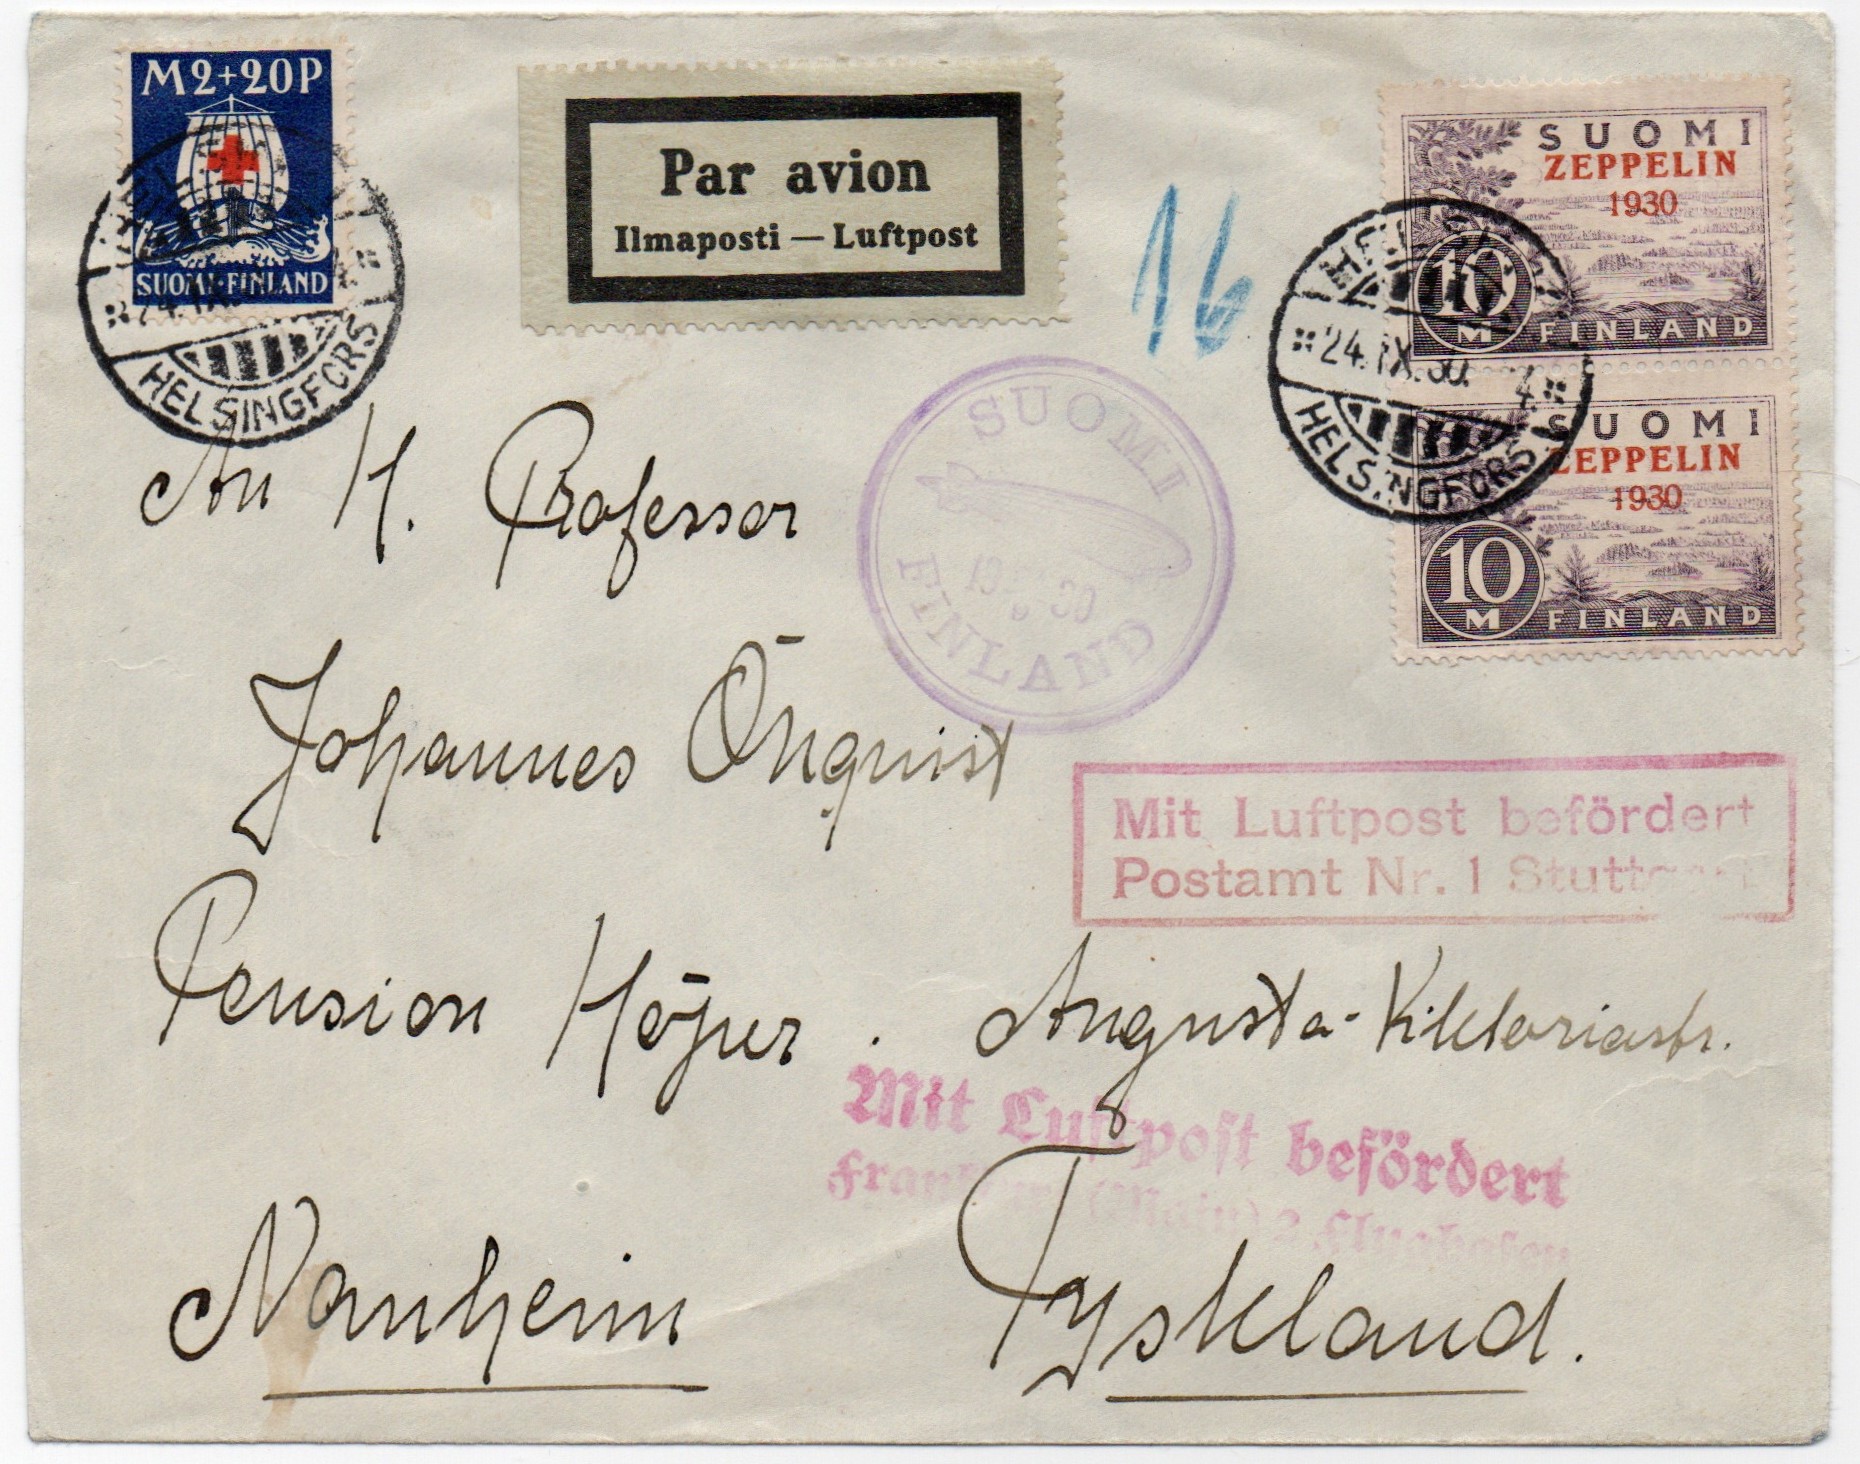 M2+20P
SUOMI·FINLAND
24.IX.
HELSINGFORS
Par avion
Ilmaposti — Luftpost
16
SUOMI
ZEPPELIN
1930
10
M
FINLAND
24.IX.30. 4.
HELSINGFORS
SUOMI
ZEPPELIN
1930
10
M
FINLAND
SUOMI
19 30
FINLAND
An H. Professor
Johannes Öhquist
Mit Luftpost befördert
Postamt Nr. 1 Stuttgart
Pension Höjer. Augusta-Viktoriastr.
Mit Luftpost befördert
(Main) 2 Flughafen
Nauheim Tyskland.